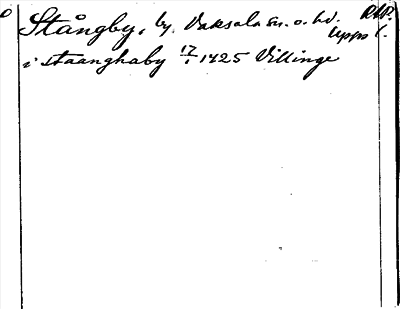 Stångby, by, Vaksala sn. o. hd.
Upps l.
i staanghaby 17/1 1425 Villinge